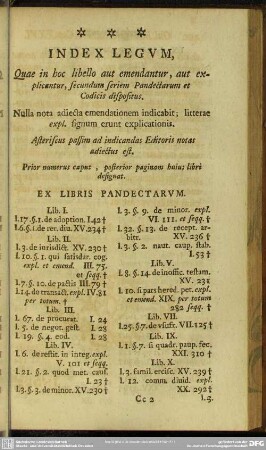 * * *
INDEX LEGVM,
Quae in hoc libello aut emendantur, aut ex-
plicantur, secundum seriem Pandectarum et
Codicis dispositus.
Nulla nota adiecta emendationem indicabit; litterae
expl. signum erunt explicationis.
Asteriscus passim ad indicandas Editoris notas
adiectus est.
Prior numerus caput, posterior paginam huius libri
designat.
EX LIBRIS PANDECTARVM.
Lib. I.
l. 17. §. 1. de adoption. I. 42 †
l. 6. §. 1. de rer. diu. XV. 234 †
Lib. II.
l. 3. de iurisdict. XV. 230 †
l. 10. §. 1. qui satisdar. cog.
expl. et emend. III. 75.
et seqq. †
l. 7. §. 10. de pactis III. 79 †
l. 14. de transact. expl. IV. 81
per totum. †
Lib. III.
l. 67. de procurat. I. 24
l. 5. de negot. gest. I. 28
l. 19. §. 4. end. I. 28
Lib. IV.
l. 6. de restit. in integ. expl.
V. 101 et seqq.
l. 21. §. 2. quod met. caus.
I. 23 †
l. 3. §. 3. de minor. XV. 230 †
l. 3. §. 9. de minor. expl.
VI. 111. et seqq. †
l. 32. §. 13. de recept. ar-
bitr. XV. 236 †
l. 3. §. 2. naut. caup. stab.
I. 53 †
Lib. V.
l. 8. §. 14. de inoffic. testam.
XV. 231
l. 10. si pars hered. pet. expl.
et emend. XIX. per totum
282 seqq. †
Lib. VII.
l. 25. §. 7. de vsufr. VII. 125 †
Lib. IX.
l. 1. §. 7. si quadr. paup. fec.
XXI. 310 †
Lib. X.
l. 3. famil. ercisc. XV. 239 †
l. 12. comm. diuid. expl.
XX. 292 †
Cc 2 l. 9.